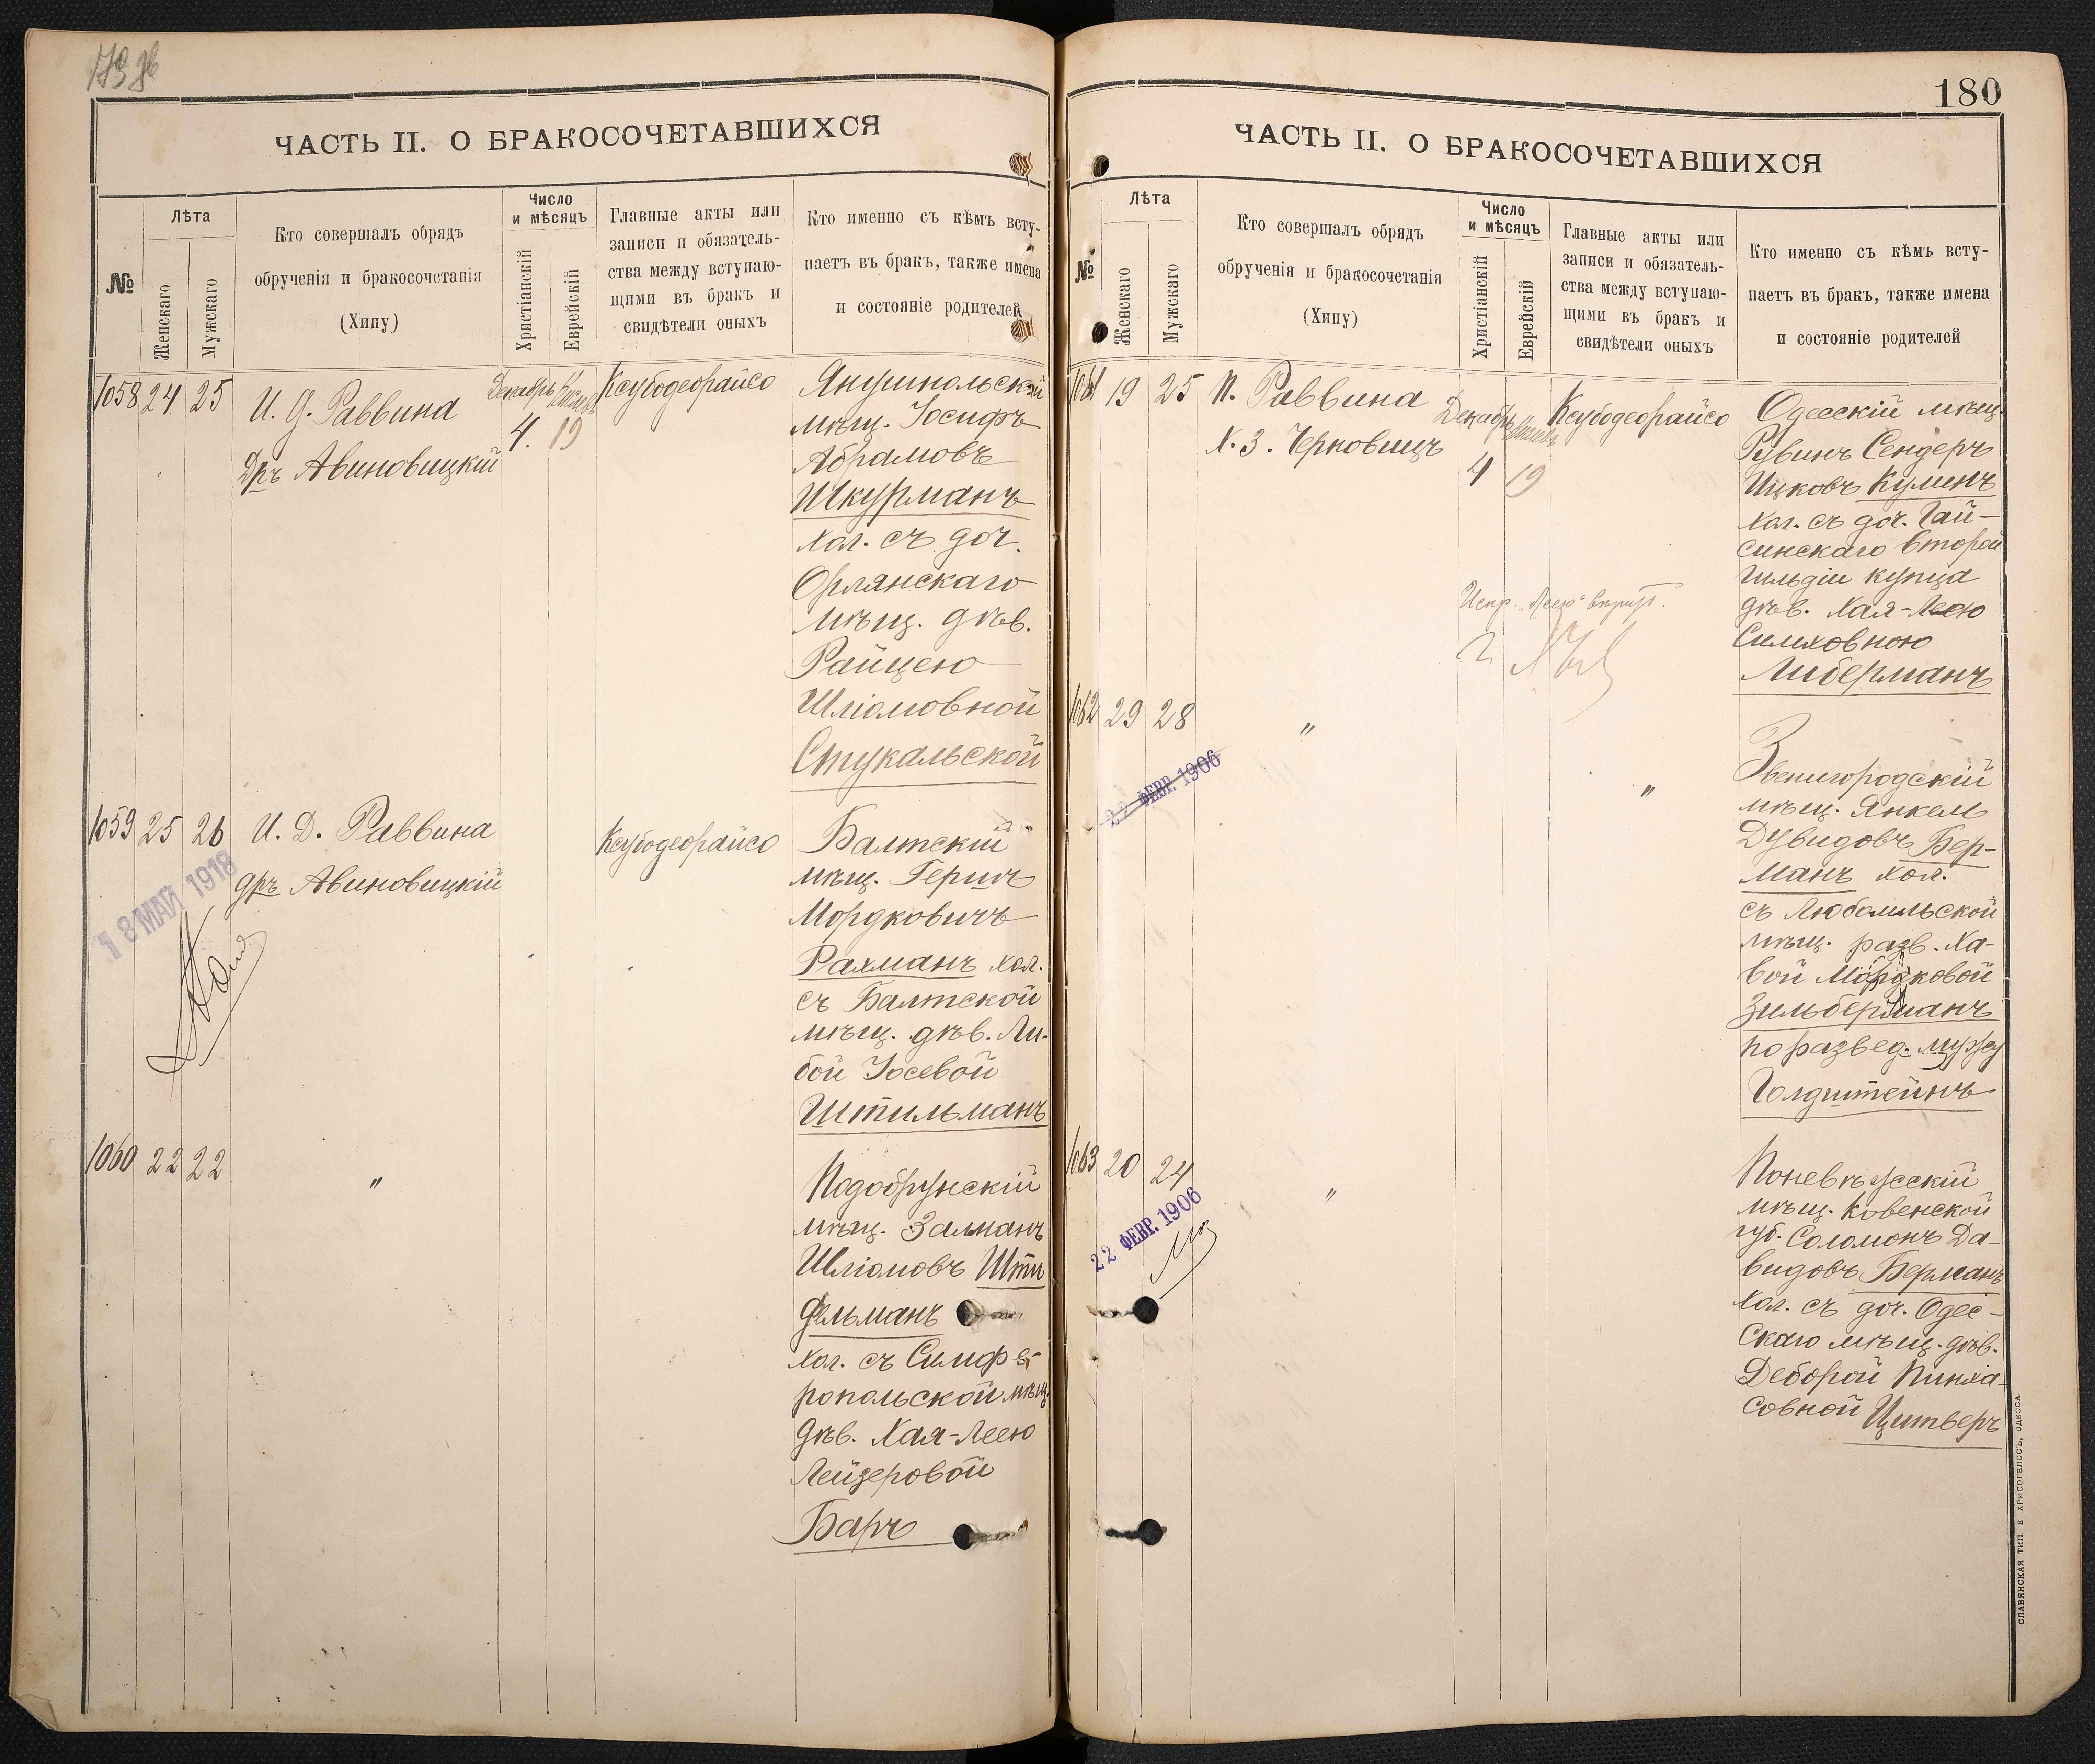 ЧАСТЬ II. О БРАКОСОЧЕТАВШИХСЯ
№
Лѣта
Женскаго
Мужскаго
Кто совершалъ обрядъ
обрученія и бракосочетанія
(Хипу)
Число
и мѣсяцъ
Христіанскій
Еврейскій
Главные акты или
записи и обязатель-
ства между вступаю-
щими въ бракъ и
свидѣтели оныхъ
Кто именно съ кѣмъ всту-
паетъ въ бракъ, также имена
и состояніе родителей
1058 24 25
И. Д. Раввина
Дръ Авиновицкій
Декабрь Кислевъ
4. 19
Ксубодеорайсо
Янушпольскій
мѣщ. Іосифъ
Абрамовъ
Шкурманъ
хол. съ доч.
Орлянскаго
мѣщ. дѣв.
Райцею
Шліомовной
Стукальской
1059 25 26
И. Д. Раввина
дръ Авиновицкій
18 МАЙ 1918
Ксубодеорайсо
Балтскій
мѣщ. Гершъ
Мордковичъ
Рахманъ хол.
съ Балтской
мѣщ. дѣв. Ли-
бой Іосевой
Штильманъ
1060 22 22
"
Подобрунскій
мѣщ. Залманъ
Шліомовъ Шти
фельманъ
хол. съ Симфе-
ропольской мѣщ.
дѣв. Хая-Леею
Лейзеровой
Баръ
180
ЧАСТЬ II. О БРАКОСОЧЕТАВШИХСЯ
№
Лѣта
Женскаго
Мужскаго
Кто совершалъ обрядъ
обрученія и бракосочетанія
(Хипу)
Число
и мѣсяцъ
Христіанскій
Еврейскій
Главные акты или
записи и обязатель-
ства между вступаю-
щими въ бракъ и
свидѣтели оныхъ
Кто именно съ кѣмъ всту-
паетъ въ бракъ, также имена
и состояніе родителей
1061 19 25
П. Раввина
Х. З. Черновицъ
Декабрь Кислевъ
4 19
Ксубодеорайсо
Одесскій мѣщ.
Рувинъ Сендеръ
Ицковъ Куминъ
хол. съ доч. Гай-
синскаго второй
гильдіи купца
дѣв. Хая-Леею
Симховною
Либерманъ
Испр. „Леею"
1062 29 28
"
"
22 ФЕВР. 1906
Звенигородскій
мѣщ. Янкель
Дувидовъ Бер-
манъ хол.
съ Любомльской
мѣщ. разв. Ха-
вой Мордковой
Зильберманъ
по развед. мужу
Голдштейнъ
1063 20 24
"
22 ФЕВР. 1906
Поневѣжскій
мѣщ. Ковенской
губ. Соломонъ Да-
видовъ Берманъ
хол. съ доч. Одес-
скаго мѣщ. дѣв.
Деборой Пинха-
совной Цитверъ
СЛАВЯНСКАЯ ТИП. Е ХРИСОГЕЛОСЪ, ОДЕССА